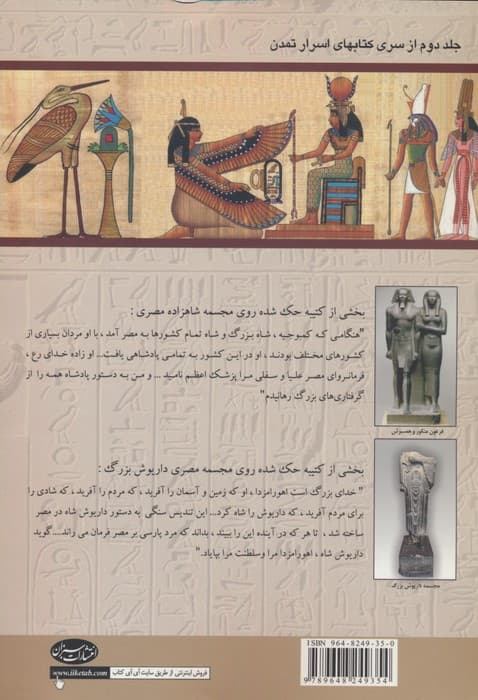 جلد دوم از سری کتابهای اسرار تمدن
بخشی از کتیبه حک شده روی مجسمه شاهزاده مصری :
"هنگامی که کمبوجیه ، شاه بزرگ و شاه تمام کشورها به مصر آمد ، با او مردان بسیاری از
کشورهای مختلف بودند ، او در این کشور به تمامی پادشاهی یافت... او زاده خدای رع ،
فرمانروای مصر علیا و سفلی مرا پزشک اعظم نامید ... و من به دستور پادشاه همه را از
گرفتاری‌های بزرگ رهانیدم"
فرعون منکور و همسرش
بخشی از کتیبه حک شده روی مجسمه مصری داریوش بزرگ :
" خدای بزرگ است اهورامزدا ، او که زمین و آسمان را آفرید ، که مردم را آفرید ، که شادی را
برای مردم آفرید ، که داریوش را شاه کرد... این تندیس سنگی به دستور داریوش شاه در مصر
ساخته شد ، تا هر که در آینده این را ببیند ، بداند که مرد پارسی بر مصر فرمان می راند....گوید
داریوش شاه ، اهورامزدا مرا وسلطنت مرا بپایاد."
مجسمه داریوش بزرگ
ISBN 964-8249-35-0
9 789648 249354
انتشارات سبزان
www.iiketab.com
فروش اینترنتی از طریق سایت آی آی کتاب